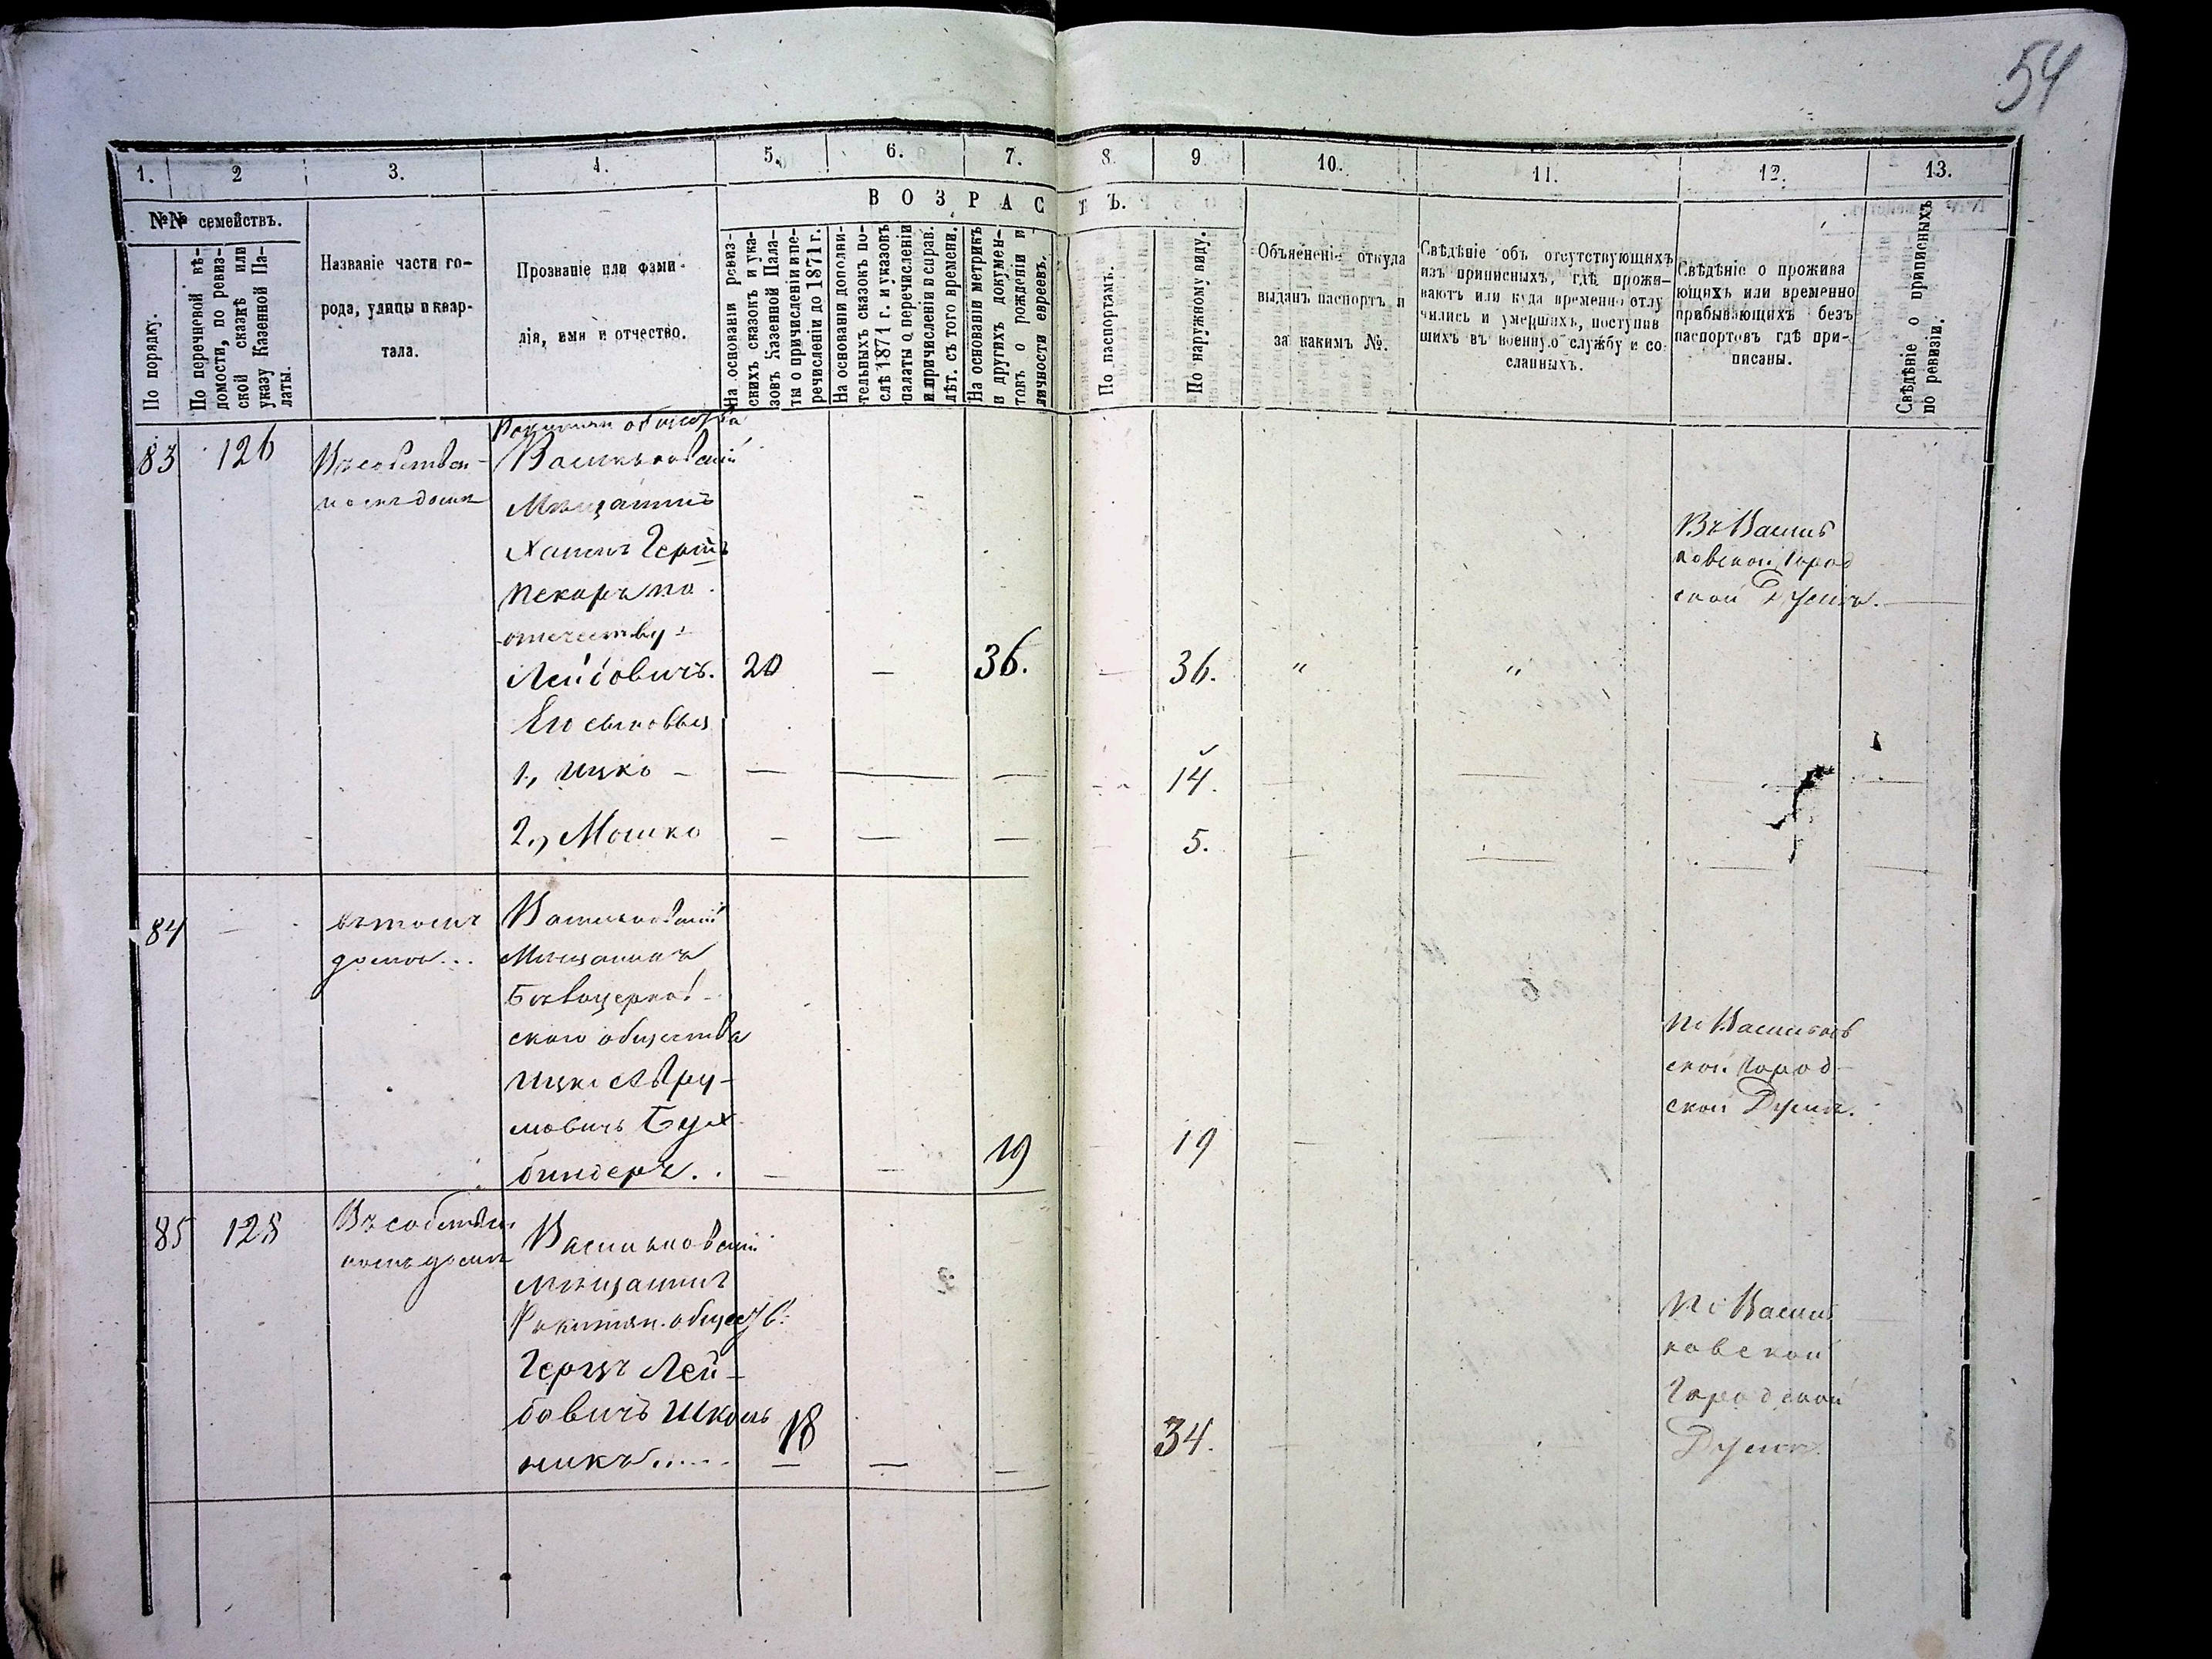 54
1. 2 3. 4. 5. 6. 7. 8. 9. 10. 11. 12. 13.
ВОЗРАСТЪ.
№№ семействъ.
По порядку.
По перечневой вѣ-
домости, по ревиз-
ской сказкѣ или
указу Казенной Па-
латы.
Названіе части го-
рода, улицы и квар-
тала.
Прозваніе или фами-
лія, имя и отчество.
На основаніи ревиз-
скихъ сказокъ и ука-
зовъ Казенной Пала-
ты о причисленіи и пе-
речисленіи до 1871 г.
На основаніи дополни-
тельныхъ сказокъ по-
слѣ 1871 г. и указовъ
палаты о перечисленіи
и причисленіи и справ.
лѣт. съ того времени.
На основаніи метрикъ
и другихъ докумен-
товъ о рожденіи и
личности евреевъ.
По паспортамъ.
По наружному виду.
Объясненіе откуда
выданъ паспортъ и
за какимъ №.
Свѣдѣніе объ отсутствующихъ
изъ приписныхъ, гдѣ прожи-
ваютъ или куда временно отлу
чились и умершихъ, поступив
шихъ въ военную службу и со
сланныхъ.
Свѣдѣніе о прожива
ющихъ или временно
прибывающихъ безъ
паспортовъ гдѣ при-
писаны.
Свѣдѣніе о приписныхъ
по ревизіи.
83 126
Въ собствен-
номъ домѣ
общества
Васильковскій
Мѣщанинъ
Пекарь по
отчеству
Лейбовичъ. 20 — 36. — 36. " "
Его сыновья
1., Ицко — — — — 14.
2., Мошко — — — 5.
Въ Василь
ковской Город
ской Думѣ.
84 —
въ томъ
домѣ...
Васильковскій
Мѣщанинъ
Бѣлоцерков-
скаго общества
Ицко Авру-
мовичъ Бух-
биндеръ. — — 19 19
Васильков
ской Город-
ской Думѣ.
85 128
Въ собствен
номъ домѣ
Васильковскій
мѣщанинъ
Ракитян. обществ:
Герцъ Лей-
бовичъ Школь
никъ..... 18 — — 34.
Василь
ковской
Городской
Думѣ.